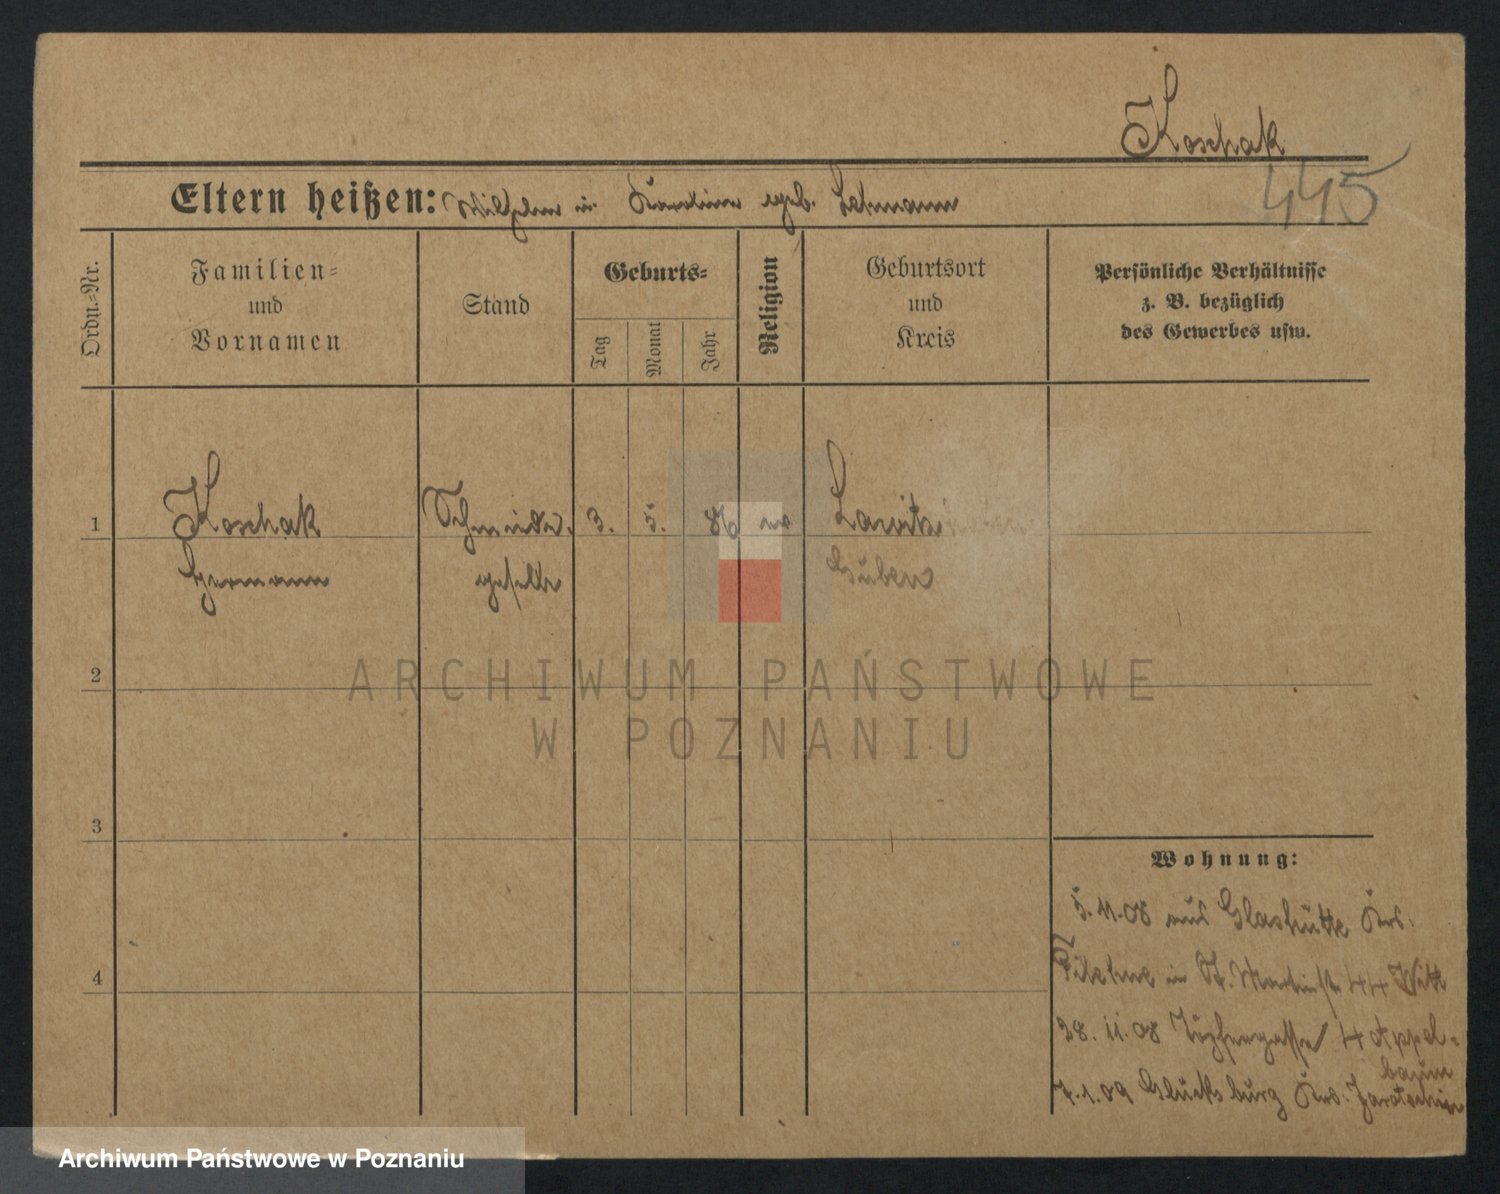 Koschak
445
Eltern heißen: Wilhelm u. Karoline geb. Lehmann
Ordn.-Nr.
Familien-
und
Vornamen
Stand
Geburts-
Tag
Monat
Jahr
Religion
Geburtsort
und
Kreis
Persönliche Verhältnisse
z. B. bezüglich
des Gewerbes usw.
1
Koschak
Hermann
Schmiede-
geselle
3.
5.
86
ev
Lawitz
Guben
2
3
4
Wohnung:
5.11.08 aus Glashütte Krs.
Filehne in St. Martinstr 44 Witt
28.11.08 Töpfergasse 4 Appel-
baum
7.1.09 Glücksburg Krs. Jarotschin
ARCHIWUM PAŃSTWOWE
W POZNANIU
Archiwum Państwowe w Poznaniu